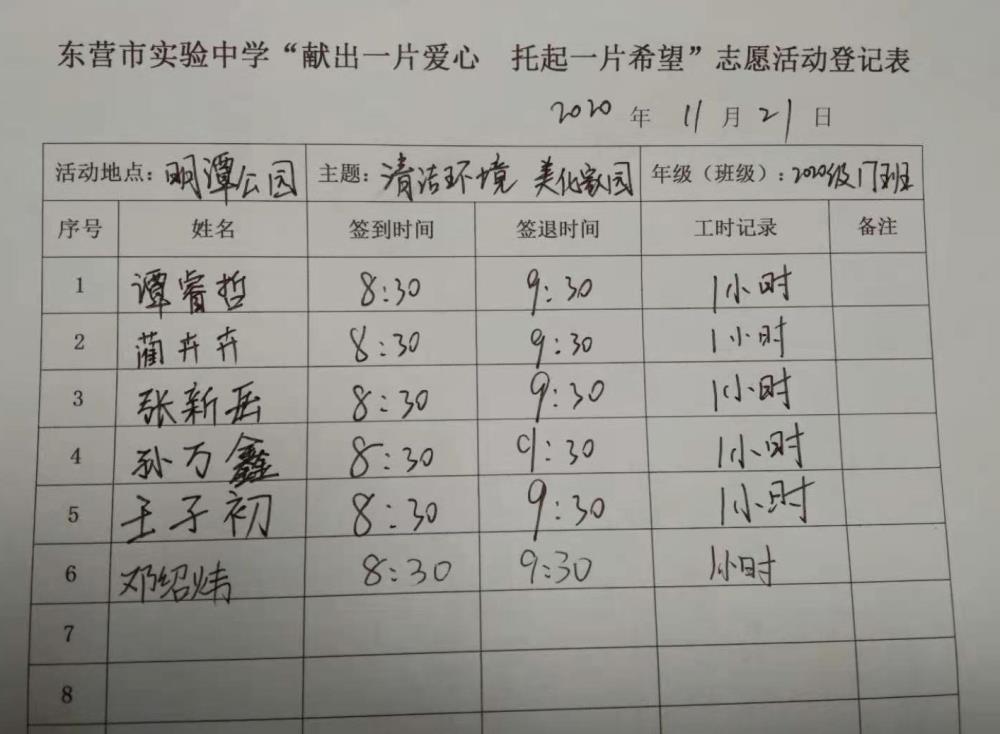 东营市实验中学“献出一片爱心 托起一片希望”志愿活动登记表
2020 年 11 月 21 日
活动地点：明潭公园 主题：清洁环境 美化家园 年级（班级）：2020级17班
序号 姓名 签到时间 签退时间 工时记录 备注
1 谭睿哲 8:30 9:30 1小时
2 蔺卉卉 8:30 9:30 1小时
3 张新岳 8:30 9:30 1小时
4 孙万鑫 8:30 9:30 1小时
5 王子初 8:30 9:30 1小时
6 邓绍炜 8:30 9:30 1小时
7
8